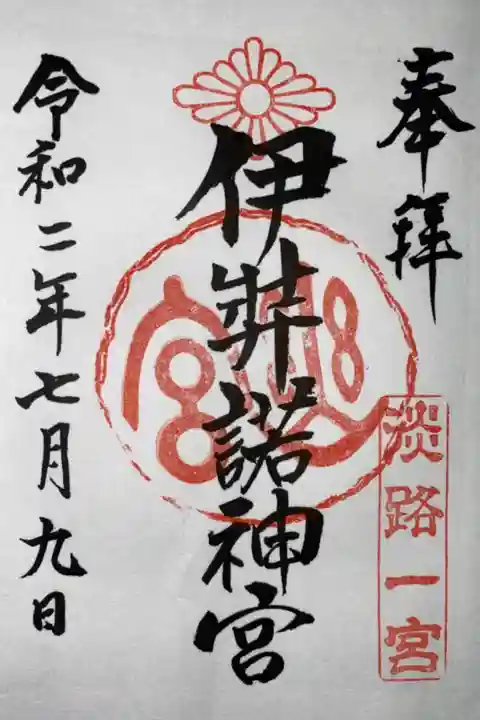 奉拝
淡路一宮
伊弉諾神宮
令和二年七月九日